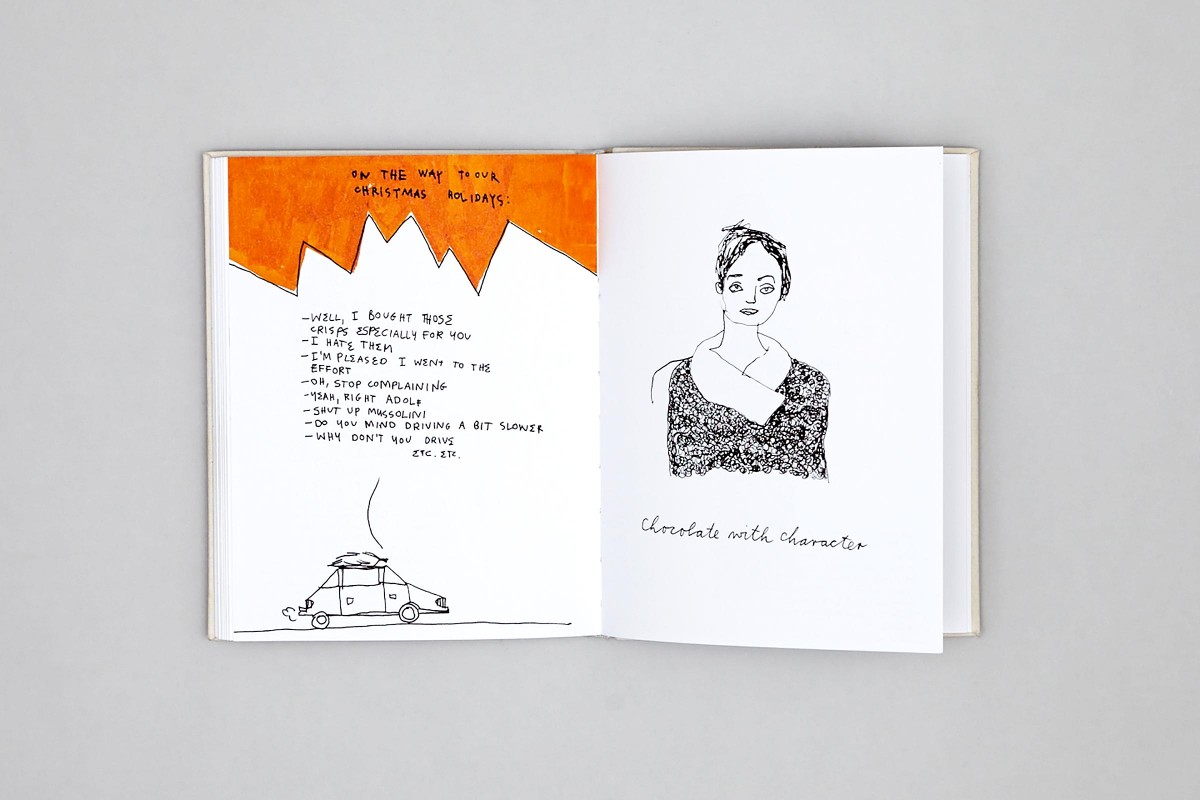 ON THE WAY TO OUR
CHRISTMAS HOLIDAYS:
–WELL, I BOUGHT THOSE
CRISPS ESPECIALLY FOR YOU
–I HATE THEM
–I'M PLEASED I WENT TO THE
EFFORT
–OH, STOP COMPLAINING
–YEAH, RIGHT ADOLF
–SHUT UP MUSSOLINI
–DO YOU MIND DRIVING A BIT SLOWER
–WHY DON'T YOU DRIVE
ETC. ETC.
Chocolate with character